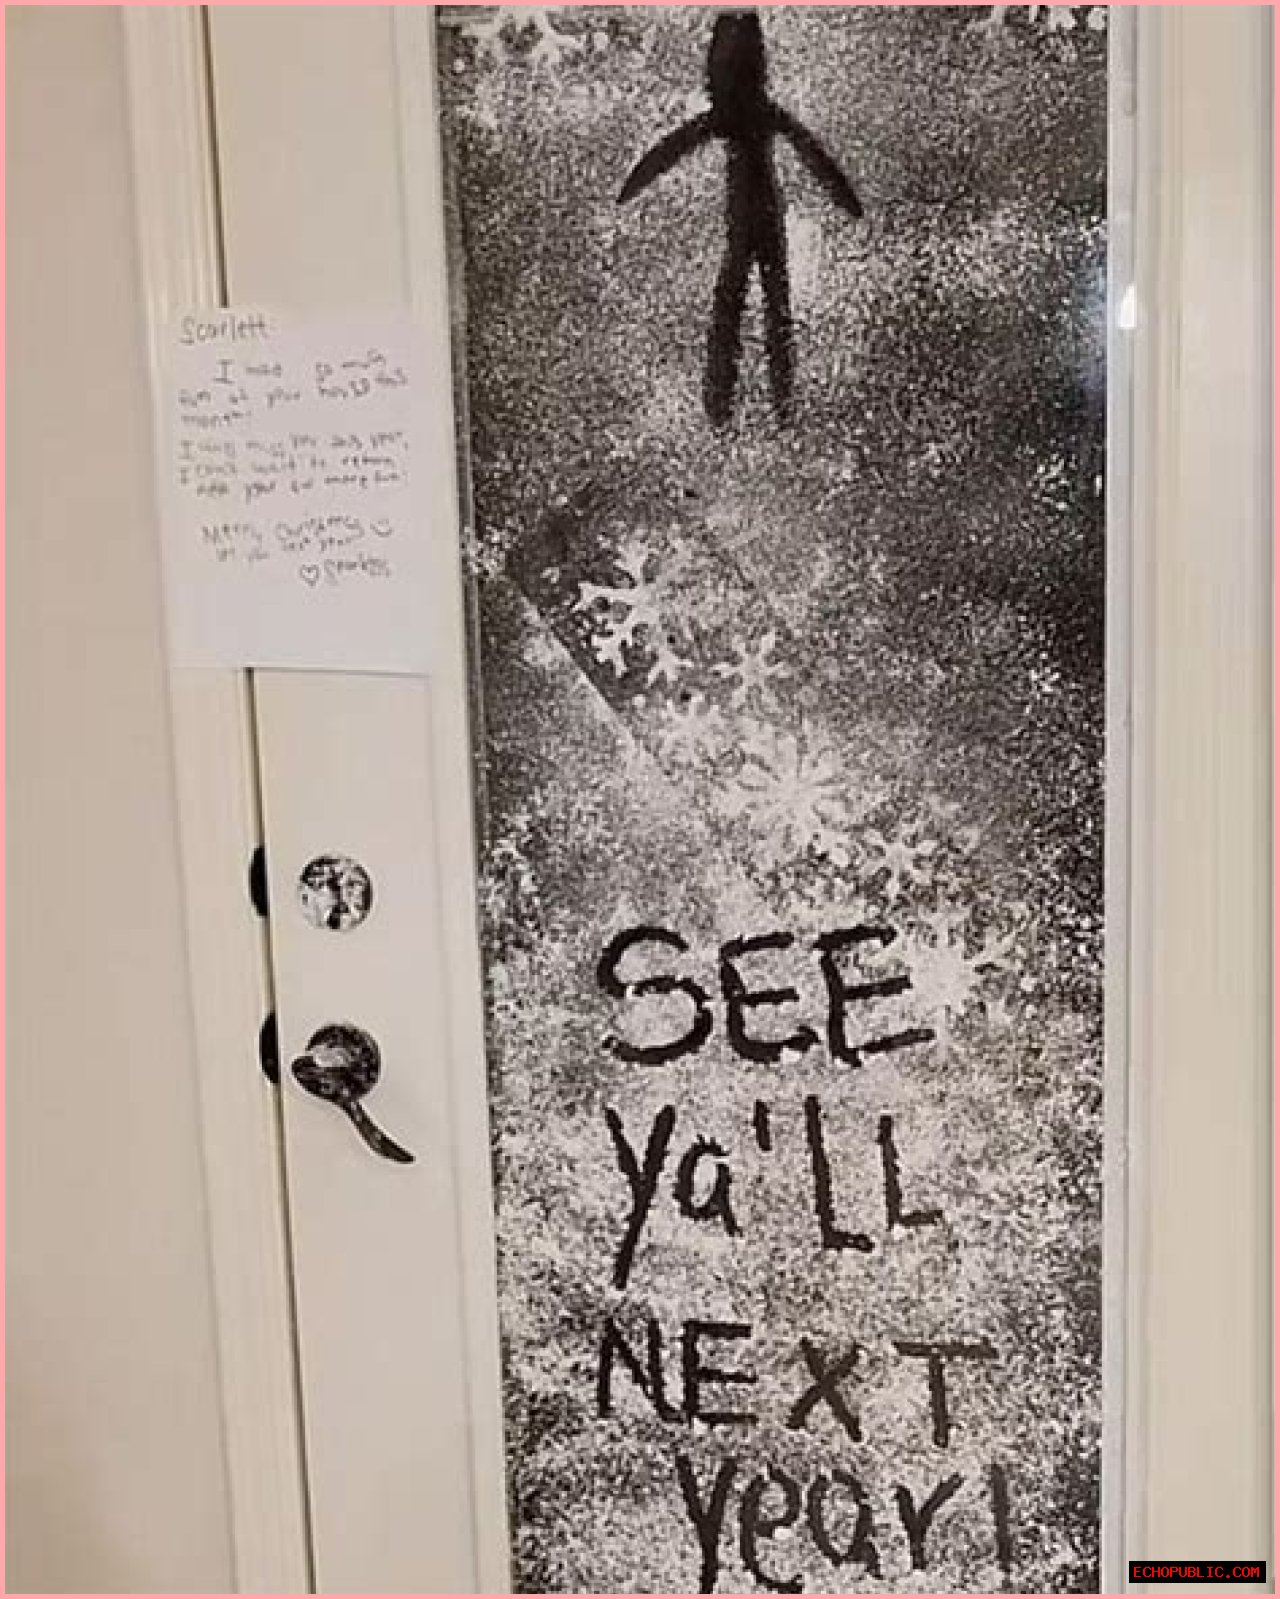 Scarlett
I had so much
fun at your house this
month!
I will miss you this year,
I can't wait to return
next year for more fun!
Merry Christmas
see you next year
♡ Sparkles
SEE
Ya'LL
NEXT
year!
ECHOPUBLIC.COM